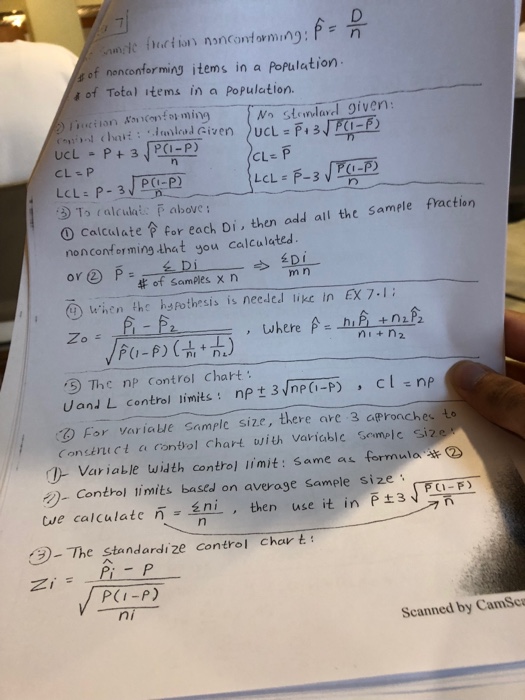 7
Sample fraction nonconforming: p̂ = D/n
# of nonconforming items in a Population.
# of Total items in a Population.
② Fraction Nonconforming
control chart: standard Given
UCL = P + 3 √(P(1-P)/n)
CL = P
LCL = P - 3 √(P(1-P)/n)
No standard given:
UCL = P̄ + 3 √(P̄(1-P̄)/n)
CL = P̄
LCL = P̄ - 3 √(P̄(1-P̄)/n)
③ To calculate P̄ above:
① Calculate p̂ for each Di, then add all the sample fraction
nonconforming that you calculated.
or ② P̄ = ΣDi / # of samples x n ⇒ ΣDi / mn
④ When the hypothesis is needed like in EX 7.1:
Z₀ = (P̂₁ - P̂₂) / √(P̂(1-P̂)(1/n₁ + 1/n₂)) , where P̂ = (n₁P̂₁ + n₂P̂₂) / (n₁ + n₂)
⑤ The nP control chart:
U and L control limits: nP ± 3 √nP(1-P) , cl = nP
⑥ For variable sample size, there are 3 approaches to
construct a control chart with variable sample size:
①- Variable width control limit: same as formula # ②
②- Control limits based on average sample size:
we calculate n̄ = Σni / n , then use it in P̄ ± 3 √(P̄(1-P̄)/n̄)
③- The standardize control chart:
Zi = (P̂i - P) / √(P(1-P)/ni)
Scanned by CamSca